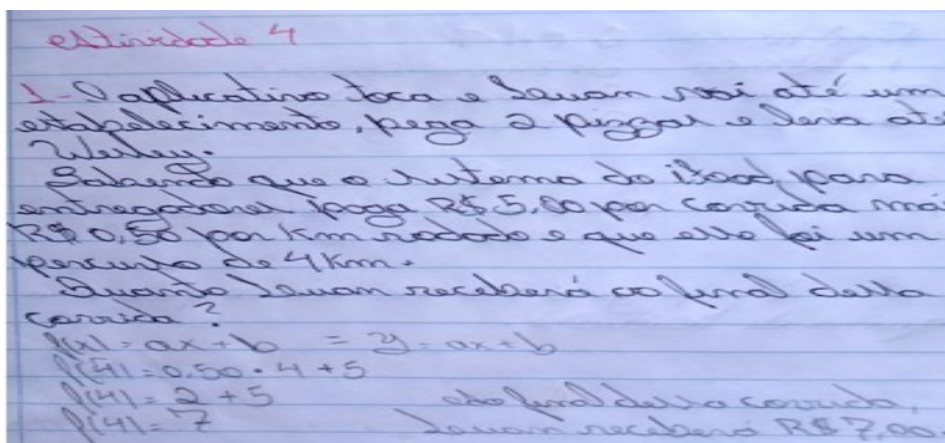 atividade 4
1-O aplicativo toca e Leuan vai até um
estabelecimento, pega 2 pizzas e leva até
Wesley.
Sabendo que o sistema do ifood para
entregadores paga R$5,00 por corrida mai
R$ 0,50 por Km rodado e que esse foi um
percurso de 4Km.
Quanto Leuan receberá ao final desta
corrida?
f(x) = ax + b = y = ax + b
f(4) = 0,50 • 4 + 5
f(4) = 2 + 5
f(4) = 7
ao final desta corrida,
Leuan receberá R$ 7,00.